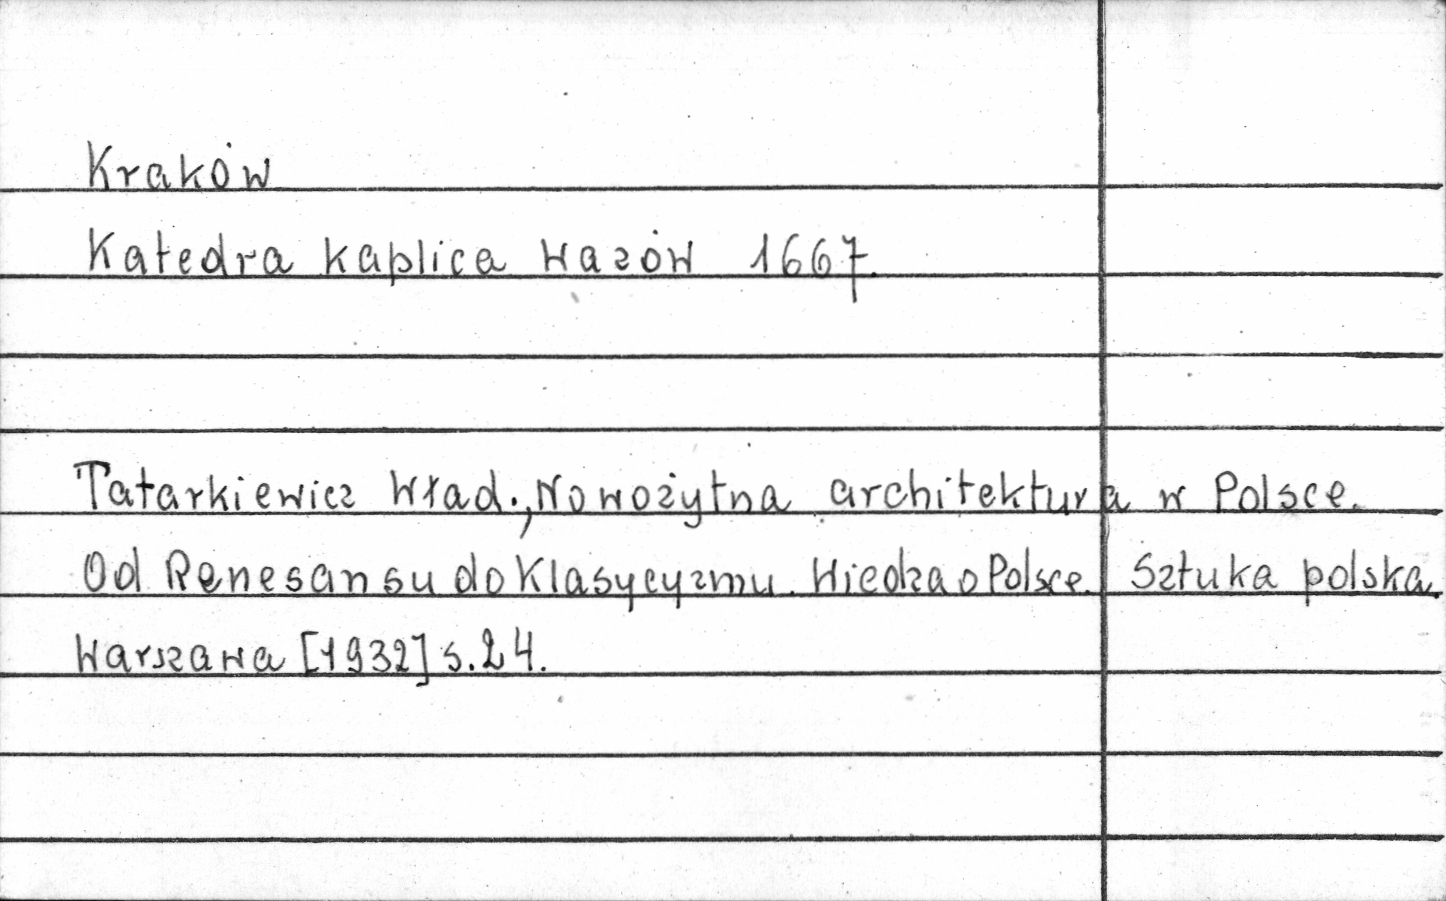 Kraków
Katedra kaplica Wazów 1667.
Tatarkiewicz Wład., Nowożytna architektura w Polsce.
Od Renesansu do Klasycyzmu. Wiedza o Polsce. Sztuka polska.
Warszawa [1932] s. 24.